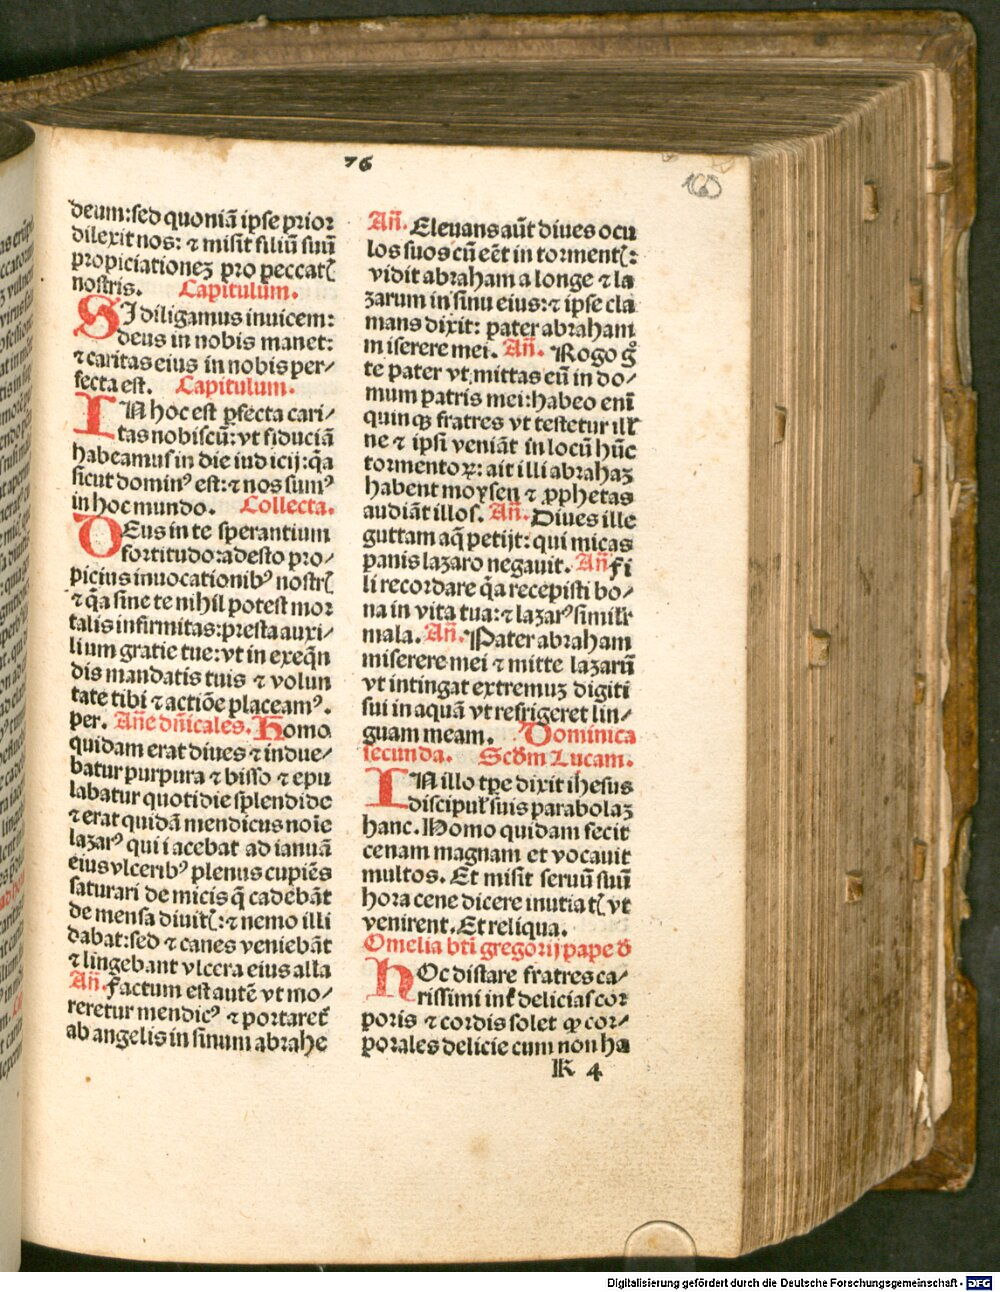 76
deum:sed quoniā ipse prior
dilexit nos: ⁊ misit filiū suū
propiciationeꝫ pro peccatꝭ
nostris. Capitulum.
SI diligamus inuicem:
deus in nobis manet:
⁊ caritas eius in nobis per⸗
fecta est. Capitulum.
IN hoc est ꝑfecta cari⸗
tas nobiscū: vt fiduciā
habeamus in die iudicij: q̄a
sicut dominꝰ est: ⁊ nos sumꝰ
in hoc mundo. Collecta.
DEus in te sperantium
fortitudo: adesto pro⸗
picius inuocationibꝰ nostrꝭ
⁊ q̄a sine te nihil potest mor
talis infirmitas: presta auxi⸗
lium gratie tue: vt in exeq̄n
dis mandatis tuis ⁊ volun
tate tibi ⁊ actiōe placeamꝰ.
per. Añe dn̄icales. Homo
quidam erat diues ⁊ indue⸗
batur purpura ⁊ bisso ⁊ epu
labatur quotidie splendide
⁊ erat quidā mendicus noīe
lazarꝰ qui iacebat ad ianuā
eius vlceribꝰ plenus cupiēs
saturari de micis q̄ cadebāt
de mensa diuitꝭ: ⁊ nemo illi
dabat: sed ⁊ canes veniebāt
⁊ lingebant vlcera eius alla
Añ. Factum est autē vt mo⸗
reretur mendicꝰ ⁊ portaret̄
ab angelis in sinum abrahe
Añ. Eleuans aūt diues ocu
los suos cū eēt in tormentꝭ:
vidit abraham a longe ⁊ la
zarum in sinu eius: ⁊ ipse cla
mans dixit: pater abraham
miserere mei. Añ. Rogo gͦ
te pater vt mittas eū in do⸗
mum patris mei: habeo enī
quinqꝫ fratres vt testetur ill̄
ne ⁊ ipsi veniāt in locū hūc
tormentoꝝ: ait illi abrahaꝫ
habent moysen ⁊ ꝓphetas
audiāt illos. Añ. Diues ille
guttam aq̄ petijt: qui micas
panis lazaro negauit. Añ Fi
li recordare q̄a recepisti bo⸗
na in vita tua: ⁊ lazarꝰ simil̄r
mala. Añ. Pater abraham
miserere mei ⁊ mitte lazarū
vt intingat extremuꝫ digiti
sui in aquā vt refrigeret lin⸗
guam meam. Dominica
secunda. Scd̄m Lucam.
IN illo tꝑe dixit ihesus
discipul̄ suis parabolaꝫ
hanc. Homo quidam fecit
cenam magnam et vocauit
multos. Et misit seruū suū
hora cene dicere inuitatꝭ vt
venirent. Et reliqua.
Omelia bti̅ gregorij pape d̄
HOc distare fratres ca⸗
rissimi int̄ delicias cor
poris ⁊ cordis solet ꝙ cor⸗
porales delicie cum non ha
K 4
Digitalisierung gefördert durch die Deutsche Forschungsgemeinschaft - DFG